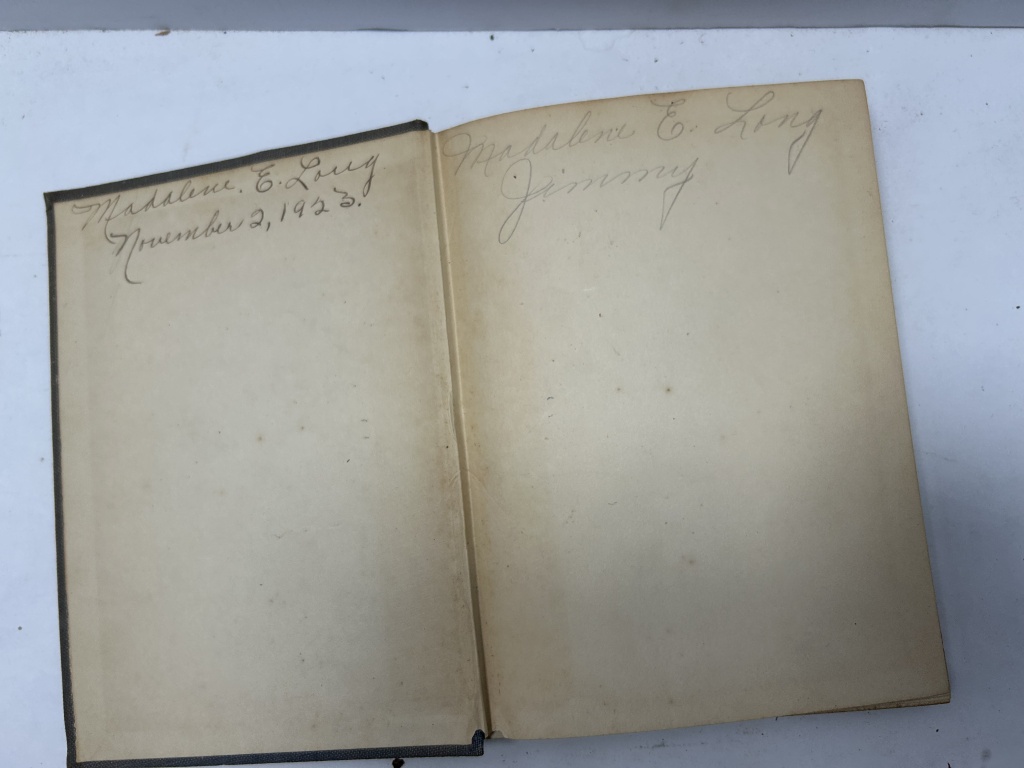 Madalene. E. Long
November 2, 1923.
Madalene E. Long
Jimmy